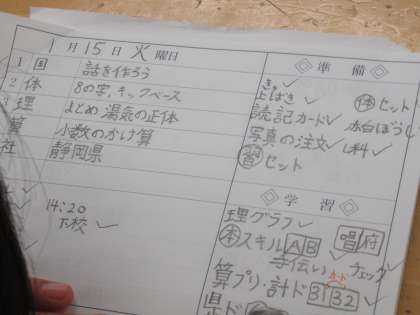 1月15日 火曜日
1 国 話を作ろう
2 体 8の字、キックベース
3 理 まとめ 湯気の正体
算 小数のかけ算
社 静岡県
14:20
下校
◇準備◇
上ばき
読記カード
写真の注文
習セット
体セット
赤白ぼうし
◇学習◇
理グラフ
本スキルAB
手伝い
唱府
チェック
算プリ・計ド31 32
カード
県ド